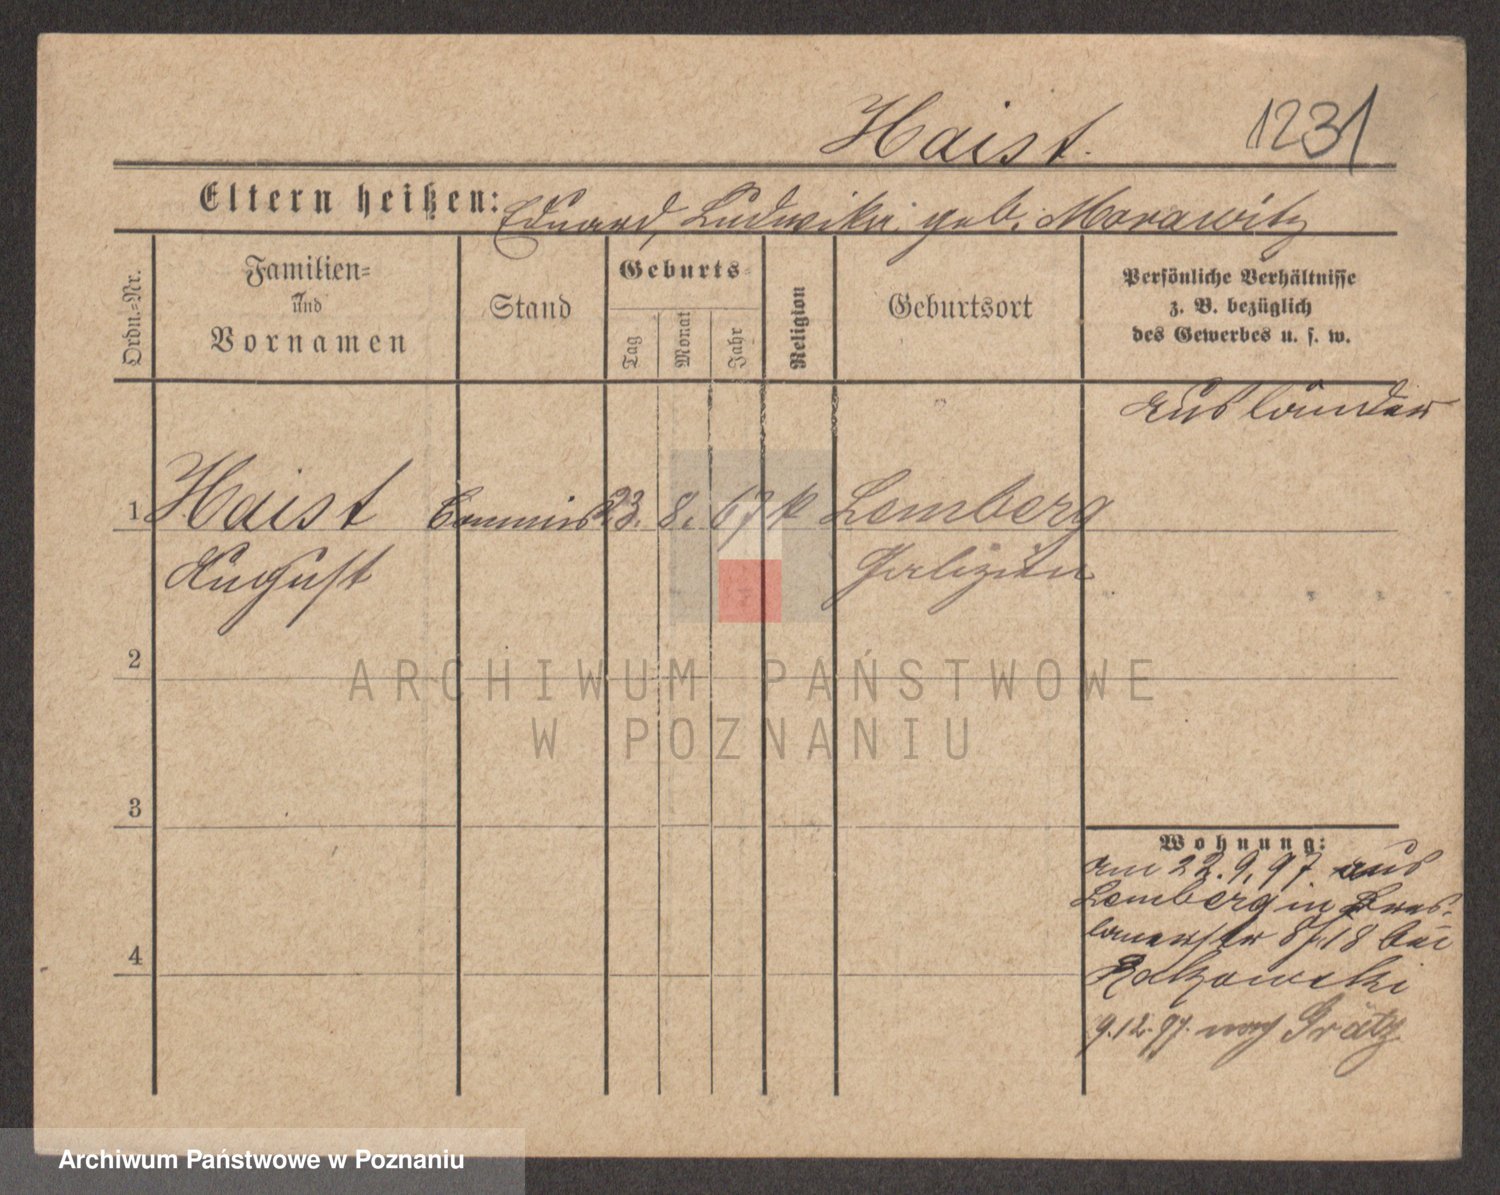 Haist.
1231
Eltern heißen: Eduard, Ludwika geb. Morawitz
Ordn.-Nr.
Familien-
und
Vornamen
Stand
Geburts-
Tag
Monat
Jahr
Religion
Geburtsort
Persönliche Verhältnisse
z. B. bezüglich
des Gewerbes u. s. w.
Ausländer
1 Haist Commis 23. 8. 67 k Lemberg
August Galizien
2
ARCHIWUM PAŃSTWOWE
W POZNANIU
3
Wohnung:
am 22.9.97 aus
Lemberg in Bres-
lauerstr 8/18 bei
Rakowski
4
9.12.97. nach Grätz
Archiwum Państwowe w Poznaniu